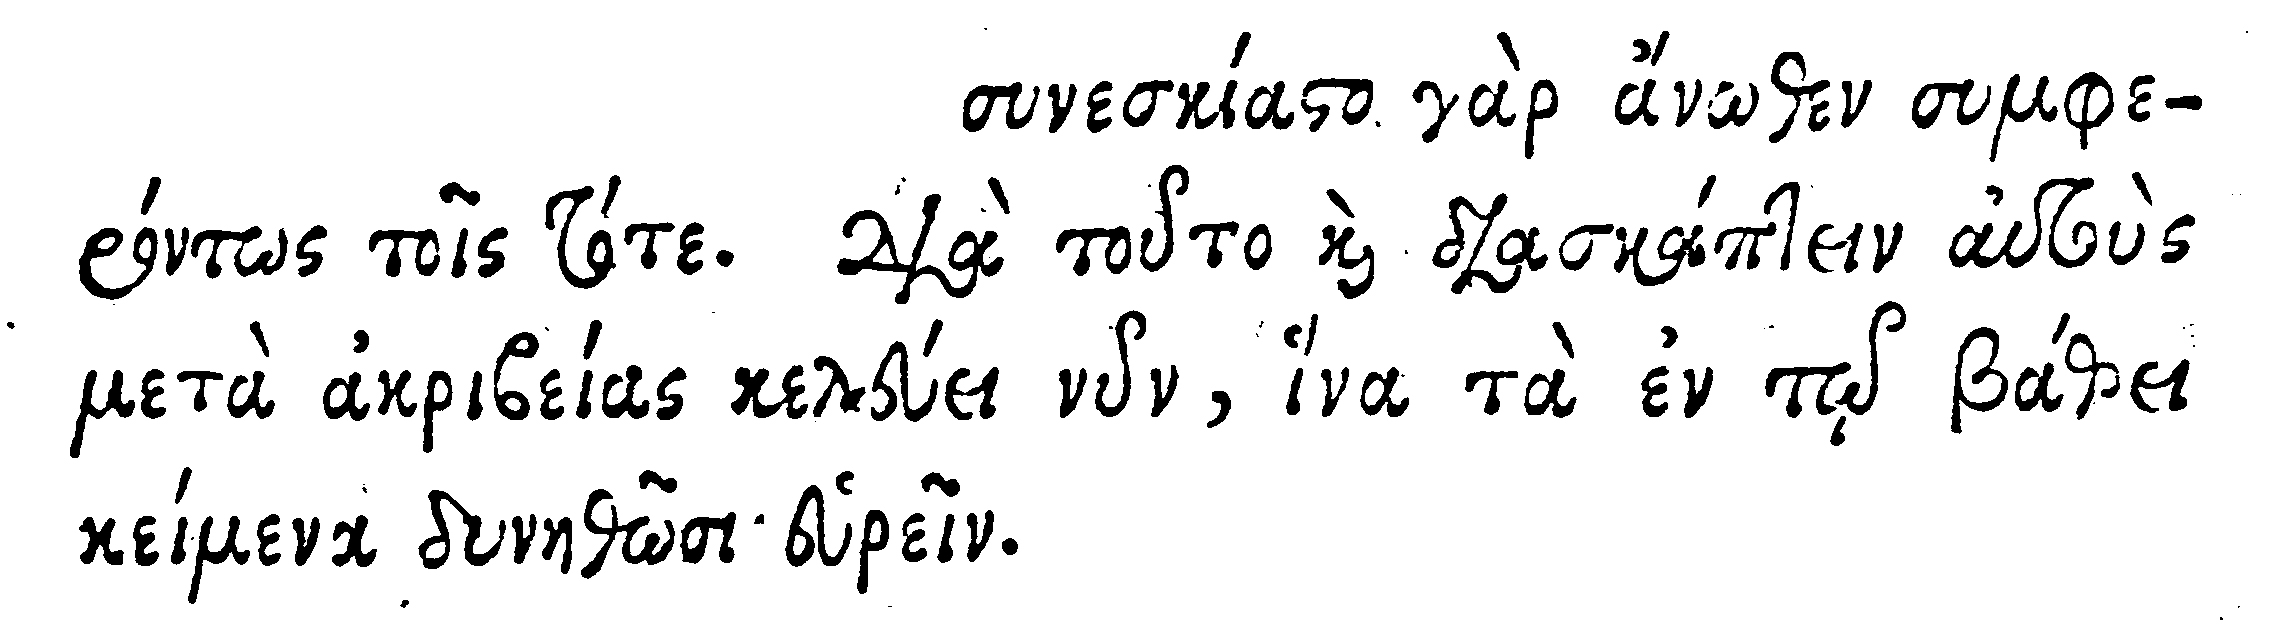 συνεσκίαστο γὰρ ἄνωθεν συμφε-
ρόντως τοῖς τότε. Διὰ τοῦτο καὶ διασκάπτειν αὐτοὺς
μετὰ ἀκριβείας κελεύει νῦν, ἵνα τὰ ἐν τῷ βάθει
κείμενα δυνηθῶσι εὑρεῖν.